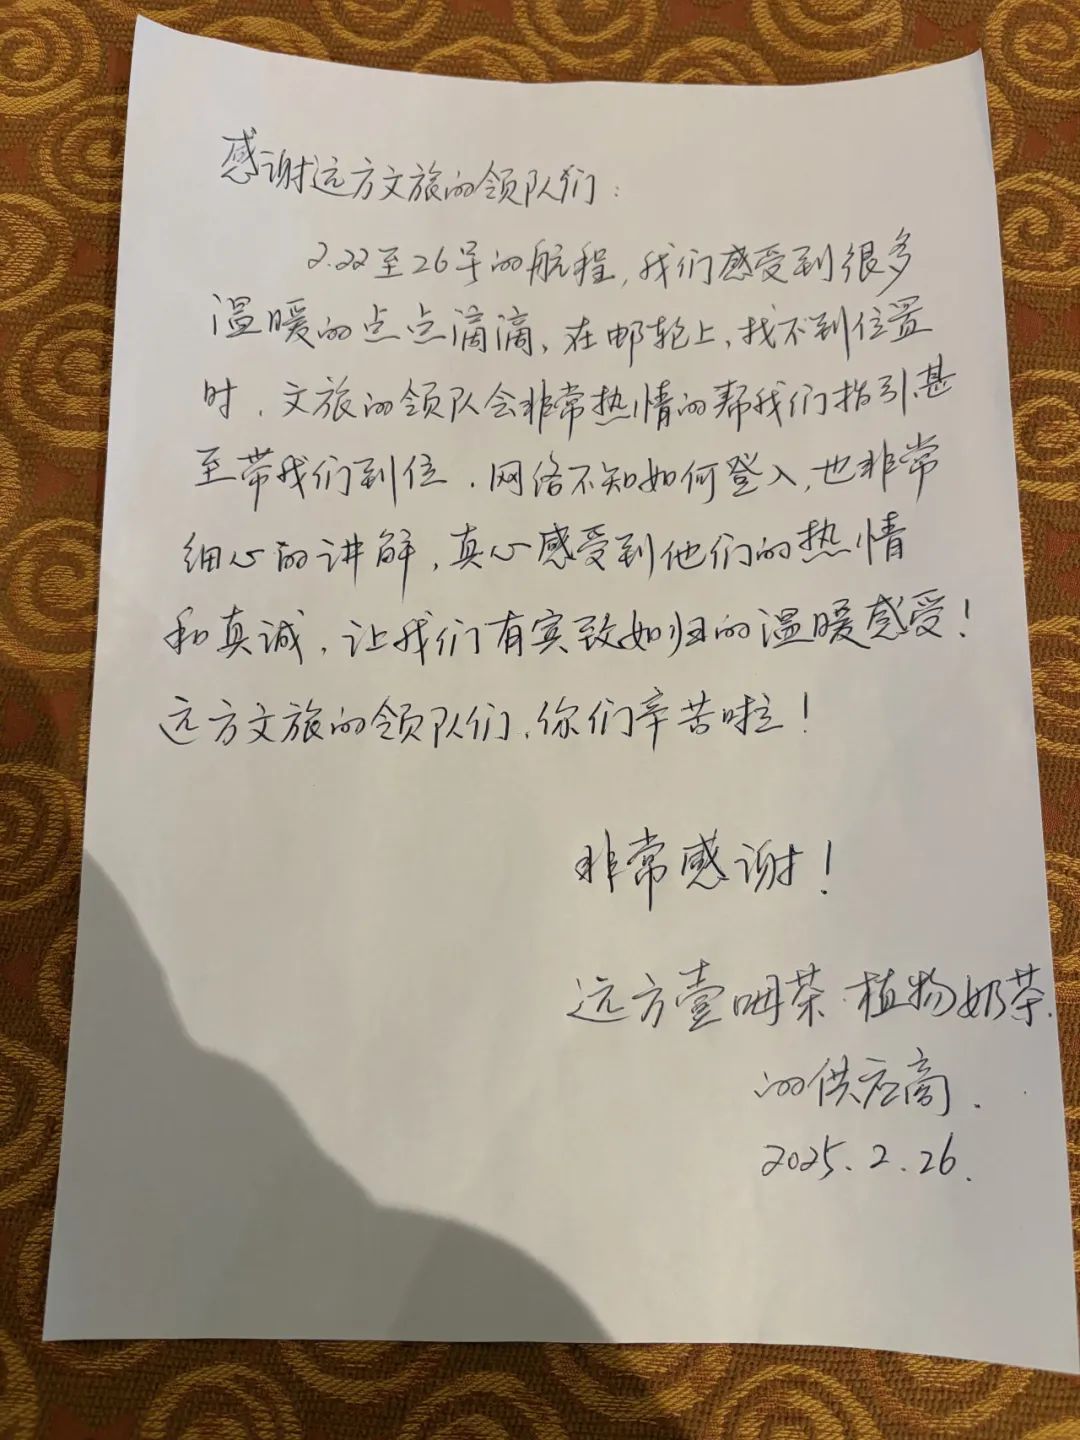 感谢远方文旅的领队们：
2.22至26号的航程,我们感受到很多
温暖的点点滴滴、在邮轮上,找不到位置
时、文旅的领队会非常热情的帮我们指引甚
至带我们到位、网络不知如何登入,也非常
细心的讲解,真心感受到他们的热情
和真诚,让我们有宾致如归的温暖感受!
远方文旅的领队们,你们辛苦啦!
非常感谢!
远方壹呣茶·植物奶茶.
的供应商.
2025.2.26.